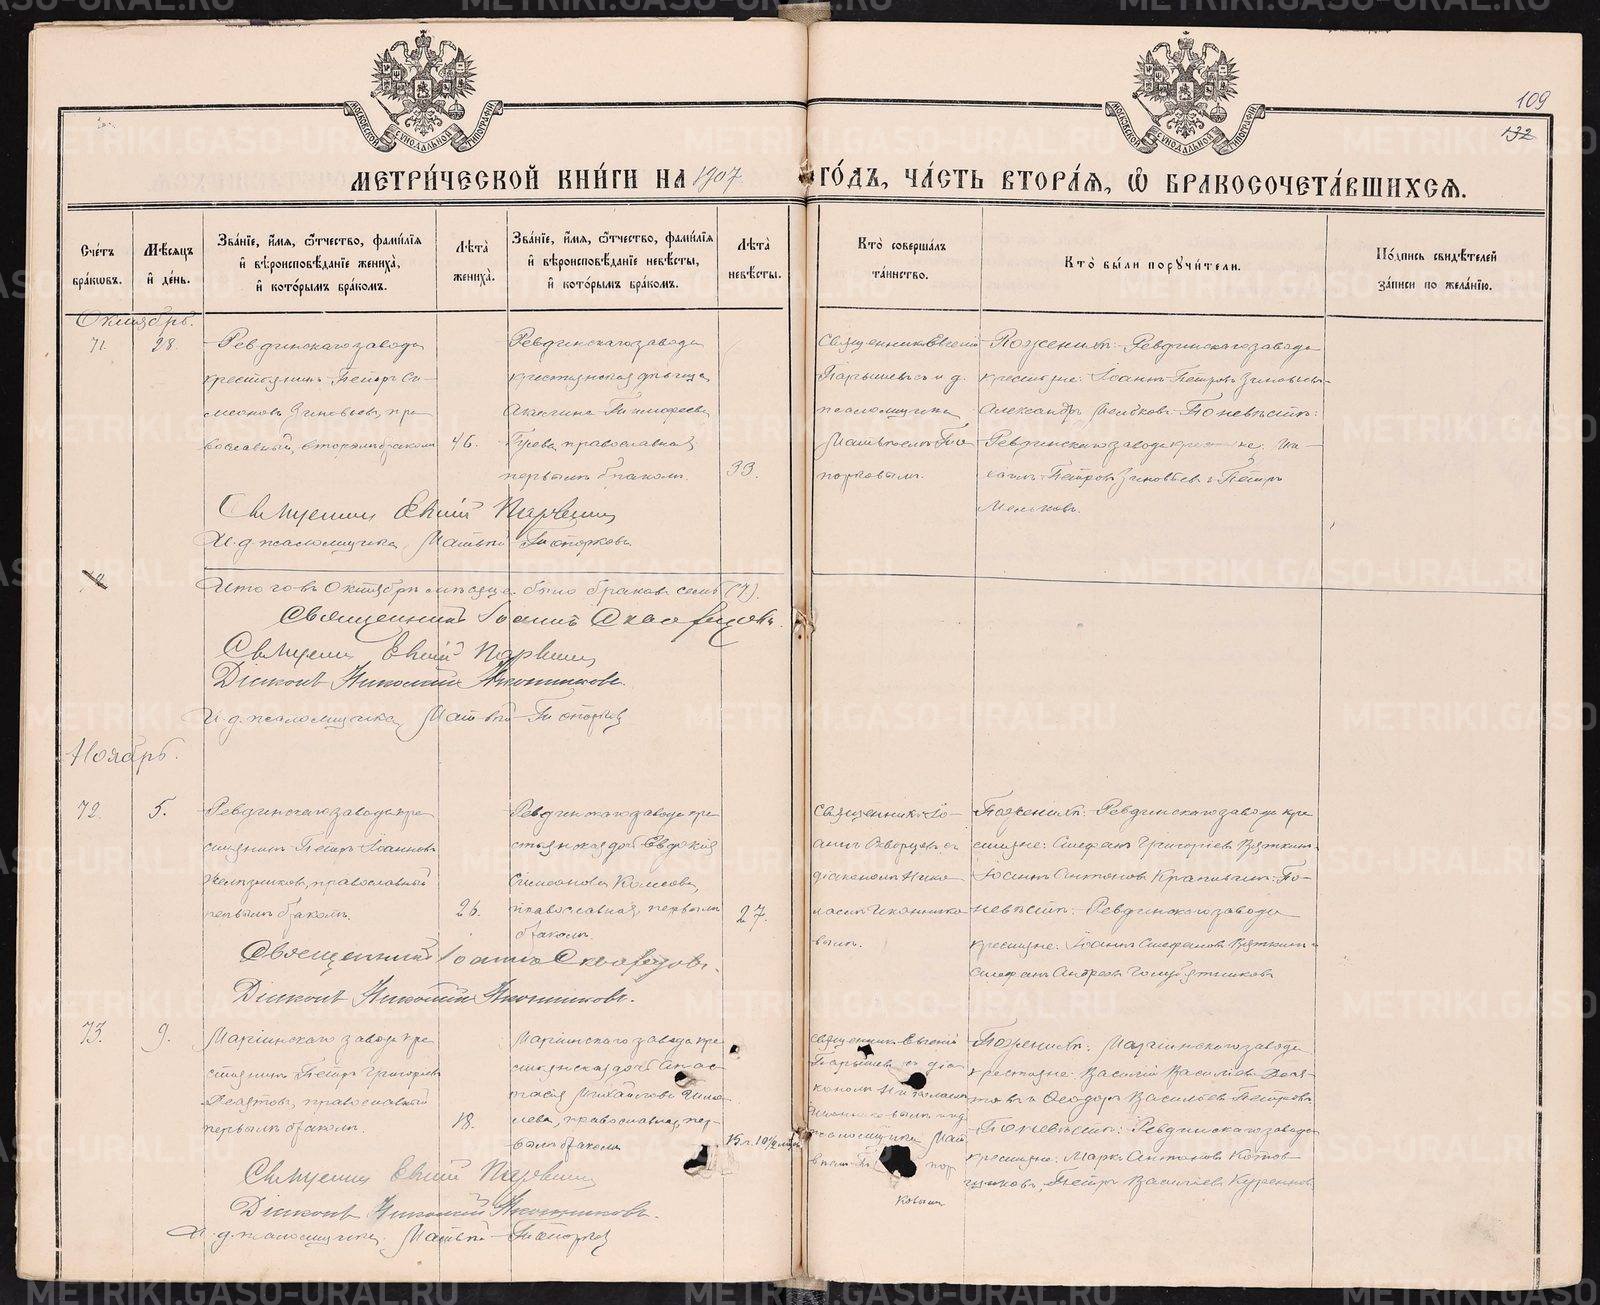 109
132
МОСКОВСКОЙ СѴНОДАЛЬНОЙ ТИПОГРАФІИ
МОСКОВСКОЙ СѴНОДАЛЬНОЙ ТИПОГРАФІИ
МЕТРИ́ЧЕСКОЙ КНИ́ГИ НА 1907 ГО́ДЪ, ЧА́СТЬ ВТОРА́Ѧ, Ѽ БРАКОСОЧЕТА́ВШИХСѦ.
Сче́тъ бра́кѡвъ.
Мѣ́сѧцъ и҆ де́нь.
Зва́нїе, и҆́мѧ, ѻ҆́тчество, фами́лїѧ и҆ вѣроисповѣ́данїе жениха̀, и҆ кото́рымъ бра́комъ.
Лѣ́та жениха̀.
Зва́нїе, и҆́мѧ, ѻ҆́тчество, фами́лїѧ и҆ вѣроисповѣ́данїе невѣ́сты, и҆ кото́рымъ бра́комъ.
Лѣ́та невѣ́сты.
Кто̀ соверша́лъ та́инство.
Кто̀ бы́ли порꙋчи́тели.
По́дпись свидѣ́телей за́писи по жела́нїю.
Октябрь.
71.
28.
Ревдинскаго завода
крестьянинъ Петръ Си-
меоновъ Зиновьевъ, пра
вославный, вторымъ бракомъ
46.
Ревдинскаго завода
крестьянская дѣвица
Тимофеева
православная
первымъ бракомъ.
33.
Священникъ Евгеній
Парышевъ съ и. д.
псаломщика
Матвѣемъ Топо
порковымъ.
По женихѣ: Ревдинскаго завода
крестьяне: Іоаннъ Петровъ Зиновьевъ
Александръ По невѣстѣ:
Ревдинскаго завода крестьяне:
Петровъ Зиновьевъ и Петръ
Священникъ Евгеній Парышевъ
И. д. псаломщика Матвѣй Топорковъ
Итого въ Октябрѣ мѣсяцѣ было браковъ семь (7).
Священникъ Іоаннъ Скворцовъ.
Священникъ Евгеній Парышевъ
Діаконъ Николай Иконниковъ.
И. д. псаломщика Матвѣй Топорковъ
Ноябрь.
72.
5.
Ревдинскаго завода кре
стьянинъ Петръ Іоанновъ
православный
первымъ бракомъ.
26.
Ревдинскаго завода кре
стьянская дочь Евдокія
Симеонова Комова,
православная, первымъ
бракомъ.
27.
Священникъ Іо-
аннъ Скворцовъ съ
діакономъ Нико-
лаемъ Иконнико
вымъ.
По женихѣ: Ревдинскаго завода кре
стьяне: Стефанъ Григоріевъ Вяткинъ
Іоаннъ Антоновъ Крапивинъ. По
невѣстѣ: Ревдинскаго завода
крестьяне: Іоаннъ Стефановъ Вяткинъ и
Стефанъ Андреевъ Голубятниковъ
Священникъ Іоаннъ Скворцовъ.
Діаконъ Николай Иконниковъ.
73.
9.
Маріинскаго завода кре
стьянинъ Петръ Григорьевъ
Десятовъ, православный
первымъ бракомъ.
18.
Маріинскаго завода кре
стьянская дочь Анас-
тасія Михайлова
православная, пер-
вымъ бракомъ
15 л. 10½ мѣс.
Священникъ Евгеній
Парышевъ съ діа
кономъ Николаемъ
Иконниковымъ и и. д.
псаломщика Мат
вѣемъ Топор
ковымъ
По женихѣ: Маріинскаго завода
крестьяне: Василій Васильевъ Деся-
товъ и Ѳеодоръ Васильевъ Петровъ
По невѣстѣ: Ревдинскаго завода
крестьяне: Маркъ Антоновъ Котов
щиковъ, Петръ Васильевъ Курренновъ
Священникъ Евгеній Парышевъ
Діаконъ Николай Иконниковъ.
И. д. псаломщика Матвѣй Топорковъ
METRIKI.GASO-URAL.RU